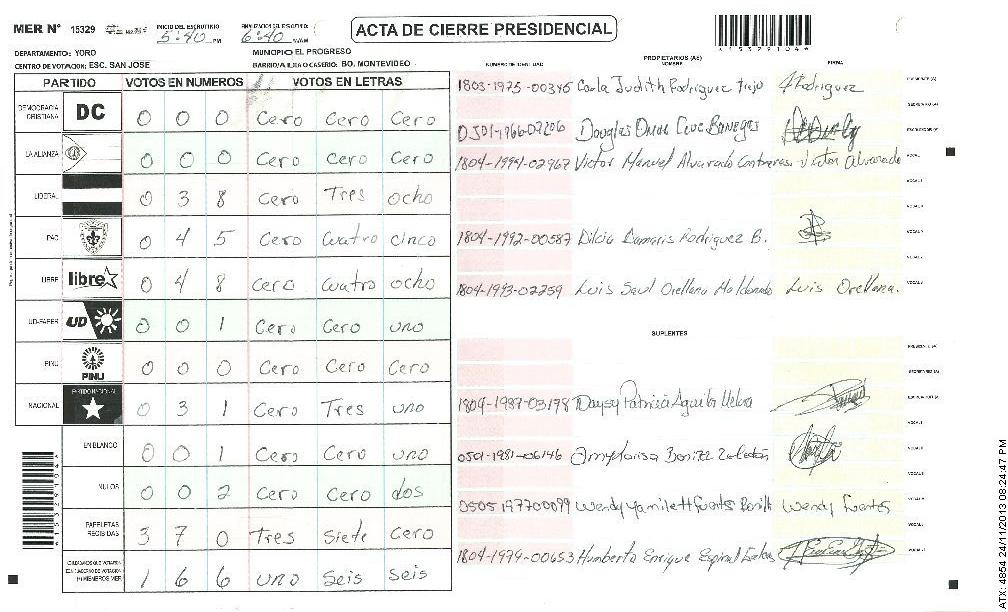 MER N° 15329 INICIO DEL ESCRUTINIO 5:40 PM FINALIZACION DEL ESCRUTINIO 6:40 ACTA DE CIERRE PRESIDENCIAL
DEPARTAMENTO: YORO MUNICPIO EL PROGRESO
CENTRO DE VOTACION: ESC. SAN JOSE BARRIO/ALDEA O CASERIO: BO. MONTEVIDEO
NUMERO DE IDENTIDAD PROPIETARIOS (AS) NOMBRE FIRMA
PARTIDO VOTOS EN NUMEROS VOTOS EN LETRAS
DEMOCRACIA CRISTIANA DC 0 0 0 Cero Cero Cero
LA ALIANZA 0 0 0 Cero Cero Cero
LIBERAL 0 3 8 Cero Tres ocho
PAC 0 4 5 Cero Cuatro cinco
LIBRE libre 0 4 8 cero cuatro ocho
UD-FAPER UD 0 0 1 Cero Cero uno
PINU PINU 0 0 0 Cero Cero Cero
NACIONAL PARTIDO NACIONAL 0 3 1 Cero Tres uno
EN BLANCO 0 0 1 Cero Cero uno
NULOS 0 0 2 Cero Cero dos
PAPELETAS RECIBIDAS 3 7 0 Tres Siete Cero
CIUDADANOS QUE VOTARON 1 6 6 uno Seis Seis
1803-1975-00345 Carla Judith Rodriguez Trejo Rodriguez PRESIDENTE (A)
SECRETARIO (A)
0501-1966-07206 Douglas Omar ESCRUTADOR (A)
1804-1994-02967 Victor Manuel Alvarado Contreras Victor Alvarado VOCAL I
VOCAL II
1804-1992-00587 Dilcia Damaris Rodriguez B.
1804-1993-02259 Luis Saul Orellana Maldonado Luis Orellana.
SUPLENTES
PRESIDENTE (A)
SECRETARIO (A)
1804-1987-03178 Daysy Patricia Aguilar ESCRUTADOR (A)
0501-1981-06146
0505 197700099 Wendy Yamileth Fuentes Wendy Fuentes
1804-1979-00653 Humberto Enrique Espinal
ATX: 4854 24/11/2013 08:24:47 PM